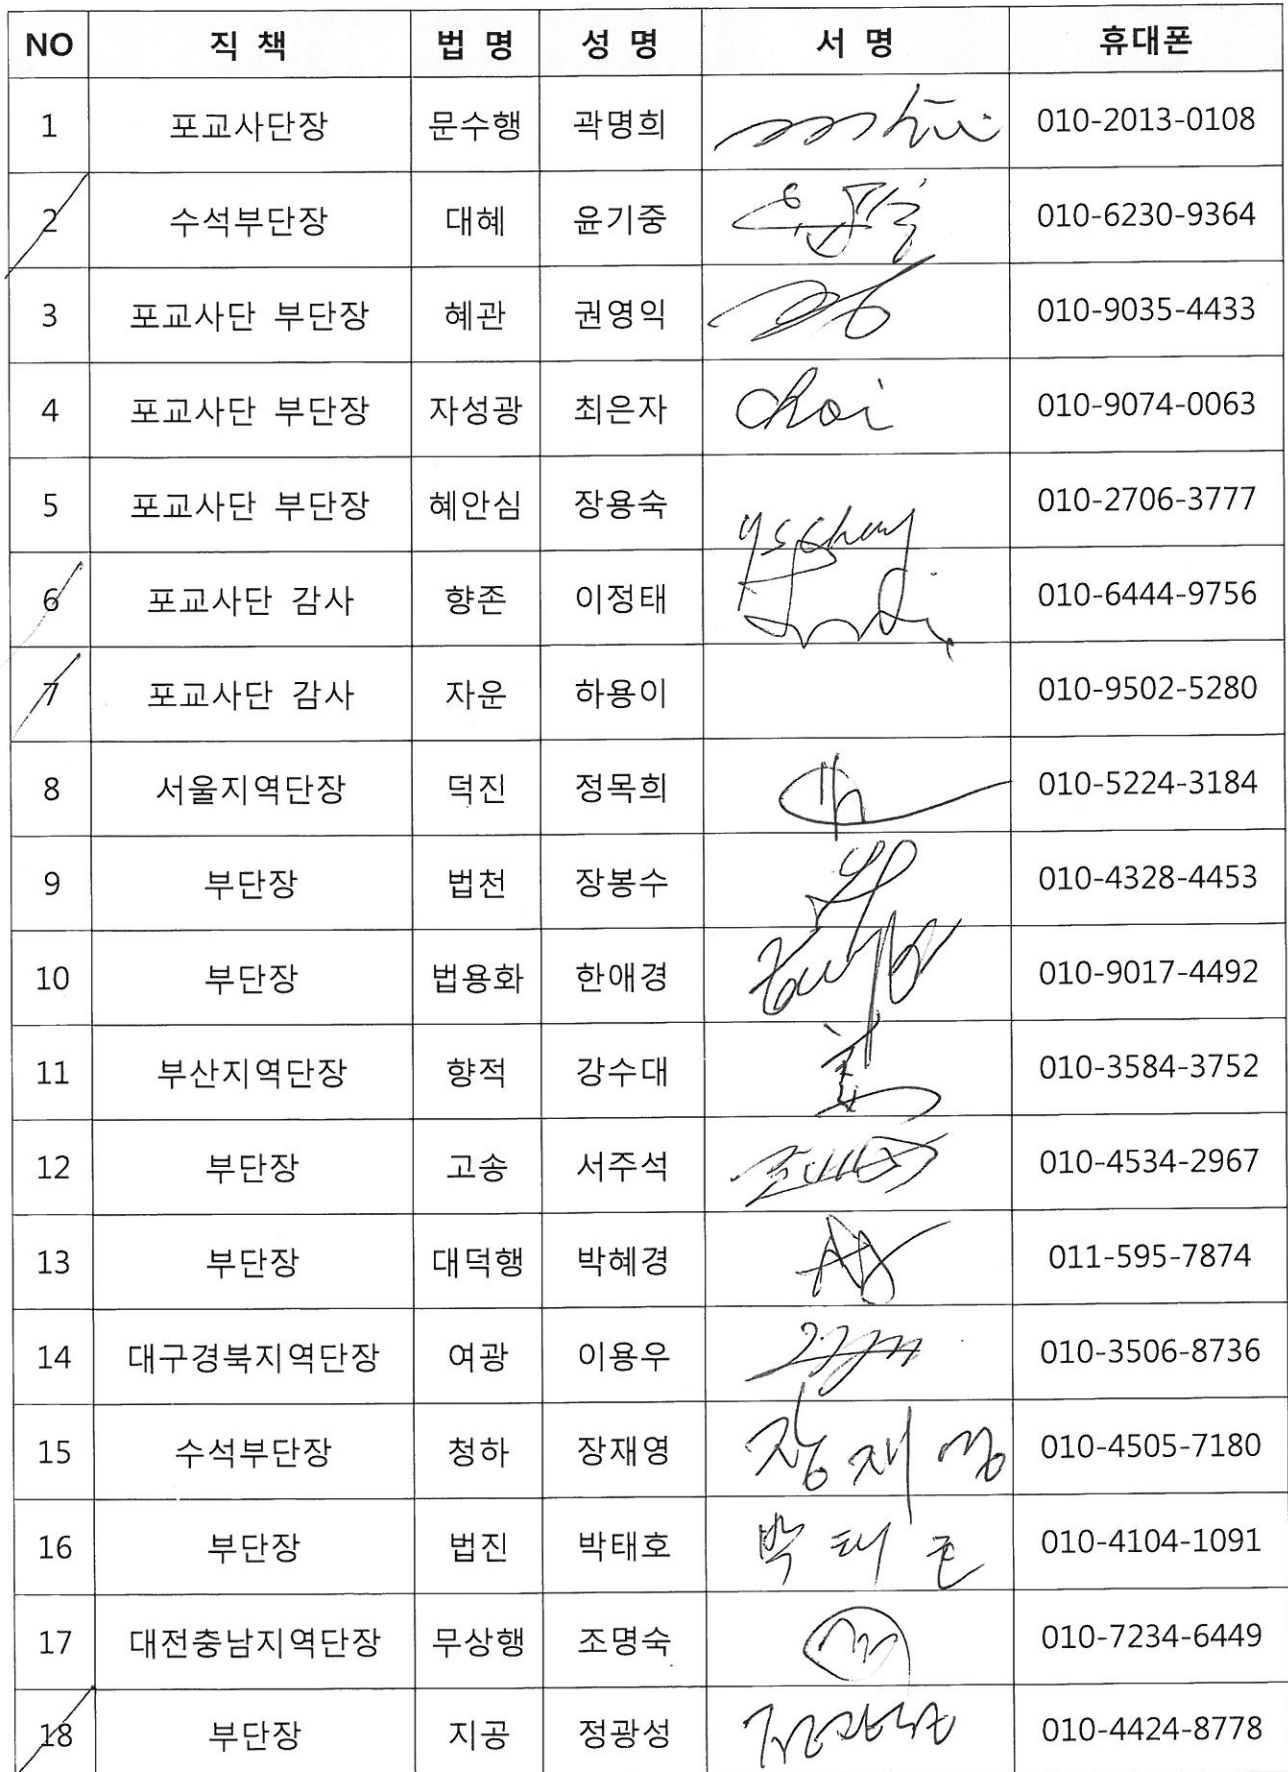 NO 직 책 법 명 성 명 서 명 휴대폰
1 포교사단장 문수행 곽명희 010-2013-0108
2 수석부단장 대혜 윤기중 010-6230-9364
3 포교사단 부단장 혜관 권영익 010-9035-4433
4 포교사단 부단장 자성광 최은자 choi 010-9074-0063
5 포교사단 부단장 혜안심 장용숙 010-2706-3777
6 포교사단 감사 향존 이정태 010-6444-9756
7 포교사단 감사 자운 하용이 010-9502-5280
8 서울지역단장 덕진 정목희 010-5224-3184
9 부단장 법천 장봉수 010-4328-4453
10 부단장 법용화 한애경 010-9017-4492
11 부산지역단장 향적 강수대 010-3584-3752
12 부단장 고송 서주석 010-4534-2967
13 부단장 대덕행 박혜경 011-595-7874
14 대구경북지역단장 여광 이용우 010-3506-8736
15 수석부단장 청하 장재영 장재영 010-4505-7180
16 부단장 법진 박태호 박태호 010-4104-1091
17 대전충남지역단장 무상행 조명숙 010-7234-6449
18 부단장 지공 정광성 010-4424-8778